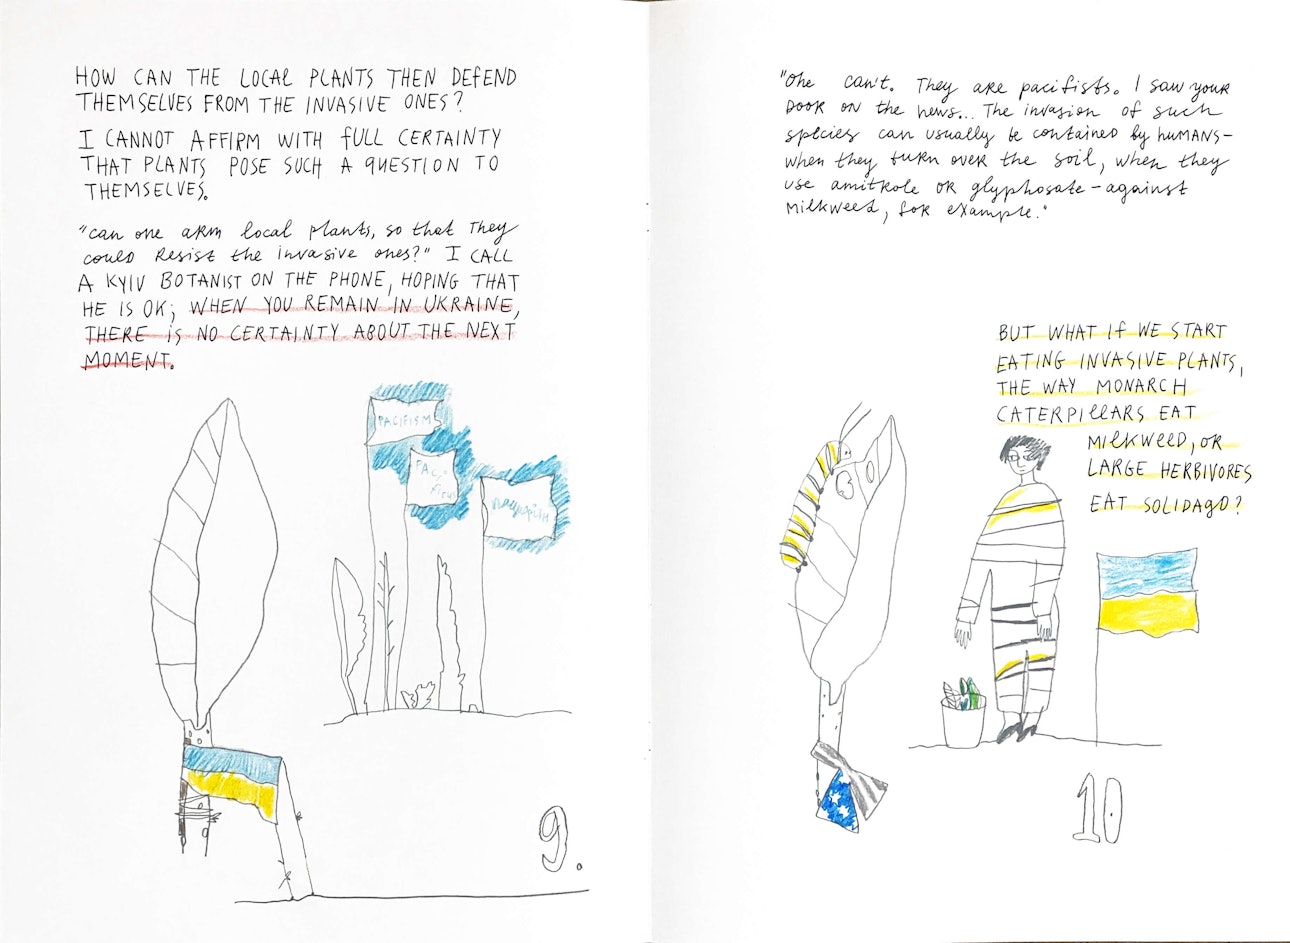 HOW CAN THE LOCAL PLANTS THEN DEFEND
THEMSELVES FROM THE INVASIVE ONES?
I CANNOT AFFIRM WITH FULL CERTAINTY
THAT PLANTS POSE SUCH A QUESTION TO
THEMSELVES.
"can one arm local plants, so that they
could resist the invasive ones?" I CALL
A KYIV BOTANIST ON THE PHONE, HOPING THAT
HE IS OK; WHEN YOU REMAIN IN UKRAINE,
THERE IS NO CERTAINTY ABOUT THE NEXT
MOMENT.
PACIFISM
PAC-
9.
"One can't. They are pacifists. I saw your
book on the news... The invasion of such
species can usually be contained by humans–
when they turn over the soil, when they
use amitrole or glyphosate – against
milkweed, for example."
BUT WHAT IF WE START
EATING INVASIVE PLANTS,
THE WAY MONARCH
CATERPILLARS EAT
MILKWEED, OR
LARGE HERBIVORES
EAT SOLIDAGO?
10